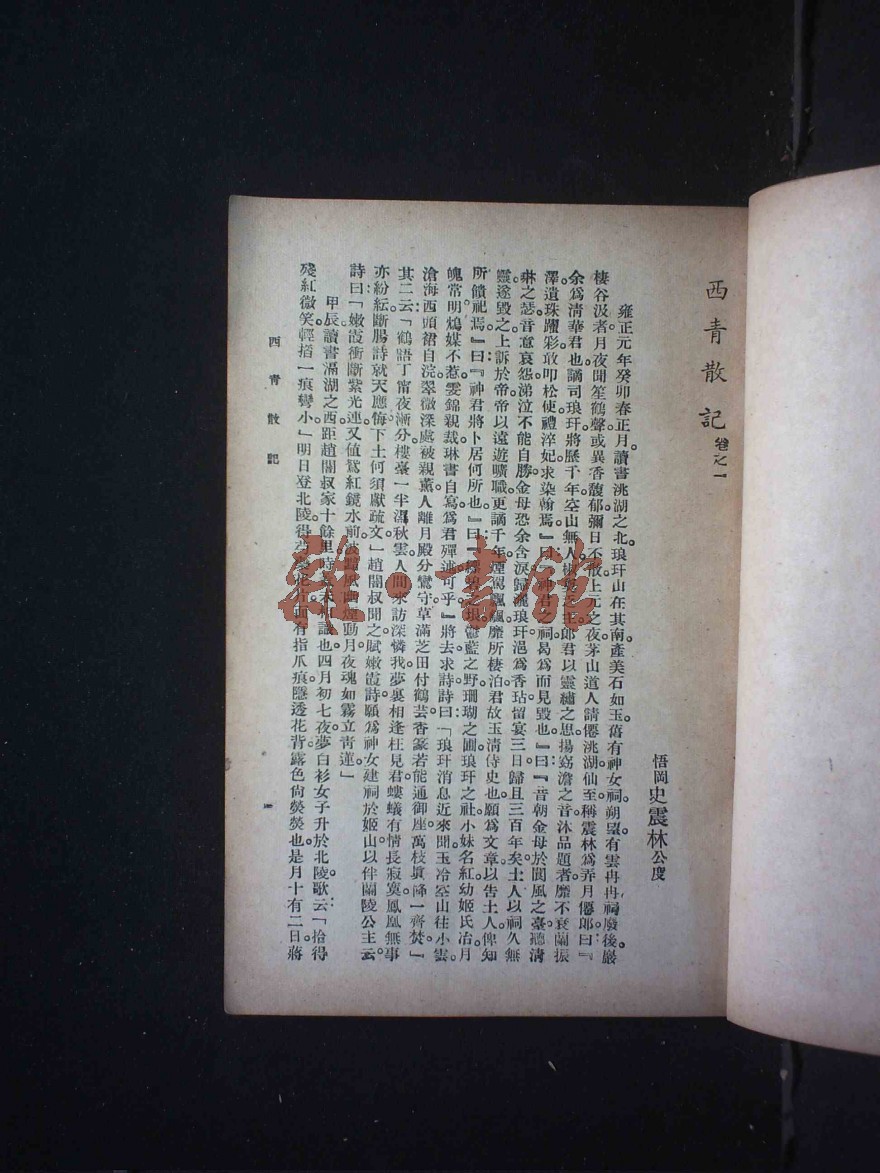 西青散記 卷之一
悟岡史震林公度
雍正元年癸卯春正月。讀書洮湖之北。琅玕山在其南。產美石如玉。舊有神女祠。朔望有雲冉冉。祠廢後。嚴
棲谷汲者。月夜聞笙鶴聲。或異香馥郁。彌日不散。上元之夜。茅山道人請僊。洮湖仙至。稱震林爲弄月僊郎。曰：『
余爲清華君也。謫司琅玕。將歷千年。空山無人。郎君以靈繡之思。揚窈澹之音。沐品題者。靡不衰蘭振
澤。遺珠躍彩。敢叩松使。禮淬妃。求染翰焉。』曰：『神君之祠。曷爲而見毀也。』曰：『昔朝金母於閬風之臺。聽清
琳之瑟。音意哀怨。涕泣不能自勝。金母恐余含淚歸灑琅玕。浥爲香玷。留宴三日。歸且三百年矣。土人以祠久無
靈。遂毀之。上訴於帝。帝以遠遊曠職。更謫千年。煙駕飄飄。靡所棲泊。君故玉清侍史也。願爲文章。以告土人。俾知
所饋祀焉。』曰：『神君將卜居何所也。』曰：『藍之野。珊瑚之圃。琅玕之社。小妹名紅幼。姬氏冶。月
魄常明。鴆媒不惹。雲錦親裁。琳書自寫。爲君殫述可乎。』將去求詩。詩曰：「琅玕消息近來聞。玉冷空山往小雲。
滄海西頭裙自浣。翠微深處被親薰。人離月殿分鸞守。草滿芝田付鶴芸。香篆若能通御座。萬枝實降一齊焚。』
其二云：「鶴語丁甯夜漸分。樓臺一半濕秋雲。人間來訪深憐我。夢裏相逢枉見君。螻蟻有情長寂寞。鳳凰無事
亦紛紜。斷腸詩就天應悔。下土何須獻疏文」趙闇叔聞之。賦嫩霞詩。願爲神女建祠於姬山。以伴關陵公主云。
詩曰：「嫩霞衝斷紫光連。又值鴛紅鏡水前。動月。夜魂如霧立青蓮。」
甲辰。讀書滆湖之西。距趙闇叔家十餘里。時也。四月初七夜。夢白衫女子升於北陵歌云：「拾得
殘紅微笑。輕搯一痕彎小」明日登北陵。得花片。面有指爪痕。隱透花背。露色尙熒熒也。是月十有二日。蔣
西青散記
一
雜·書館